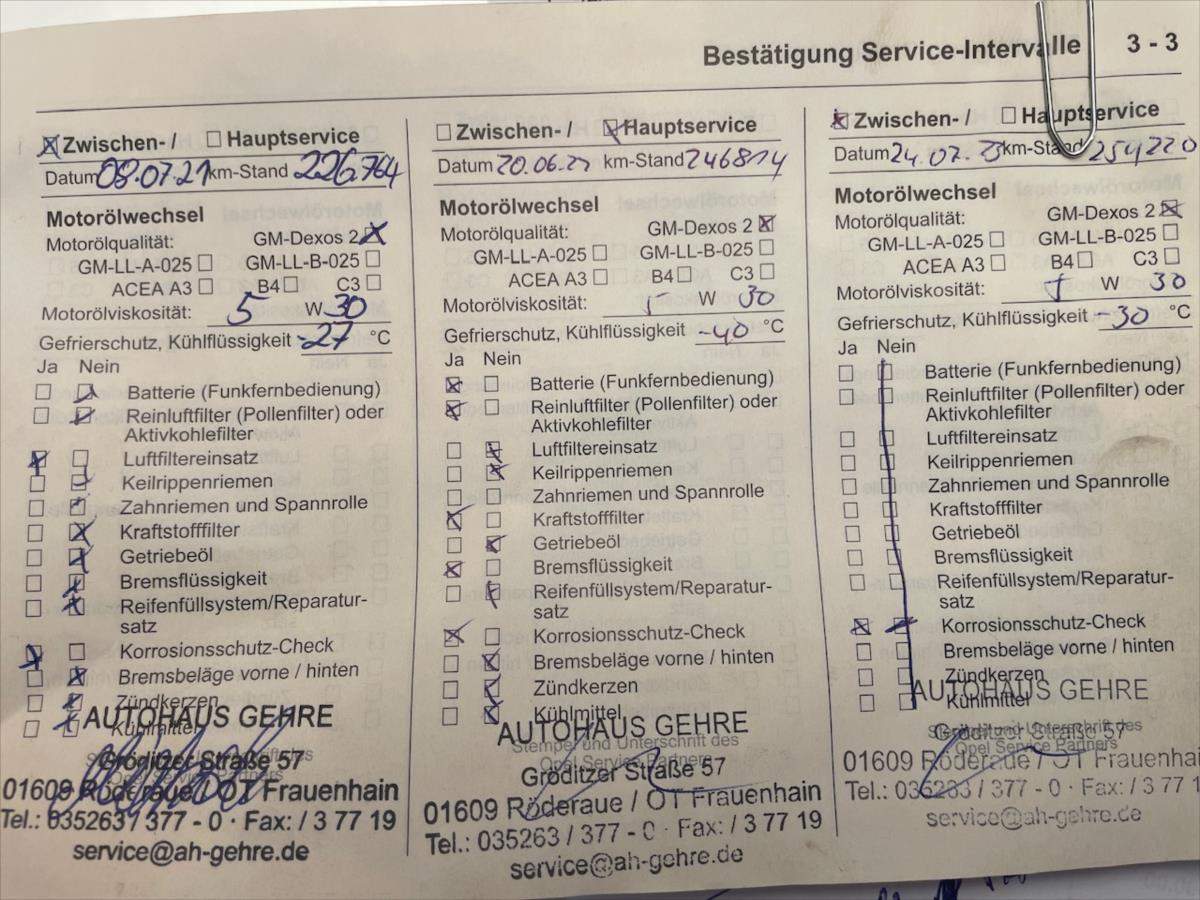 Bestätigung Service-Intervalle 3 - 3
☒ Zwischen- / ☐ Hauptservice
Datum 08.07.21 km-Stand 226764
Motorölwechsel
Motorölqualität: GM-Dexos 2 ☒
GM-LL-A-025 ☐ GM-LL-B-025 ☐
ACEA A3 ☐ B4 ☐ C3 ☐
Motorölviskosität: 5 W 30
Gefrierschutz, Kühlflüssigkeit -27 °C
Ja Nein
☐ ☒ Batterie (Funkfernbedienung)
☐ ☒ Reinluftfilter (Pollenfilter) oder
Aktivkohlefilter
☒ ☐ Luftfiltereinsatz
☐ ☒ Keilrippenriemen
☐ ☒ Zahnriemen und Spannrolle
☐ ☒ Kraftstofffilter
☐ ☒ Getriebeöl
☐ ☒ Bremsflüssigkeit
☐ ☒ Reifenfüllsystem/Reparatur-
satz
☒ ☐ Korrosionsschutz-Check
☐ ☒ Bremsbeläge vorne / hinten
☐ ☒ Zündkerzen
☐ ☒ Kühlmittel
AUTOHAUS GEHRE
Stempel und Unterschrift des
Opel Service Partners
Gröditzer Straße 57
01609 Röderaue / OT Frauenhain
Tel.: 035263 / 377 - 0 · Fax: / 3 77 19
service@ah-gehre.de
☐ Zwischen- / ☒ Hauptservice
Datum 20.06.22 km-Stand 246814
Motorölwechsel
Motorölqualität: GM-Dexos 2 ☒
GM-LL-A-025 ☐ GM-LL-B-025 ☐
ACEA A3 ☐ B4 ☐ C3 ☐
Motorölviskosität: 5 W 30
Gefrierschutz, Kühlflüssigkeit -40 °C
Ja Nein
☒ ☐ Batterie (Funkfernbedienung)
☒ ☐ Reinluftfilter (Pollenfilter) oder
Aktivkohlefilter
☐ ☒ Luftfiltereinsatz
☐ ☒ Keilrippenriemen
☐ ☐ Zahnriemen und Spannrolle
☒ ☐ Kraftstofffilter
☐ ☒ Getriebeöl
☒ ☐ Bremsflüssigkeit
☐ ☒ Reifenfüllsystem/Reparatur-
satz
☒ ☐ Korrosionsschutz-Check
☐ ☒ Bremsbeläge vorne / hinten
☐ ☒ Zündkerzen
☐ ☒ Kühlmittel
AUTOHAUS GEHRE
Stempel und Unterschrift des
Opel Service Partners
Gröditzer Straße 57
01609 Röderaue / OT Frauenhain
Tel.: 035263 / 377 - 0 · Fax: / 3 77 19
service@ah-gehre.de
☒ Zwischen- / ☐ Hauptservice
Datum 24.07. km-Stand 254220
Motorölwechsel
Motorölqualität: GM-Dexos 2 ☒
GM-LL-A-025 ☐ GM-LL-B-025 ☐
ACEA A3 ☐ B4 ☐ C3 ☐
Motorölviskosität: 5 W 30
Gefrierschutz, Kühlflüssigkeit -30 °C
Ja Nein
☐ ☐ Batterie (Funkfernbedienung)
☐ ☐ Reinluftfilter (Pollenfilter) oder
Aktivkohlefilter
☐ ☐ Luftfiltereinsatz
☐ ☐ Keilrippenriemen
☐ ☐ Zahnriemen und Spannrolle
☐ ☐ Kraftstofffilter
☐ ☐ Getriebeöl
☐ ☐ Bremsflüssigkeit
☐ ☐ Reifenfüllsystem/Reparatur-
satz
☒ ☐ Korrosionsschutz-Check
☐ ☐ Bremsbeläge vorne / hinten
☐ ☐ Zündkerzen
☐ ☐ Kühlmittel
AUTOHAUS GEHRE
Stempel und Unterschrift des
Opel Service Partners
Gröditzer Straße 57
01609 Röderaue / OT Frauenhai
Tel.: 035263 / 377 - 0 · Fax: / 3 77 1
service@ah-gehre.de